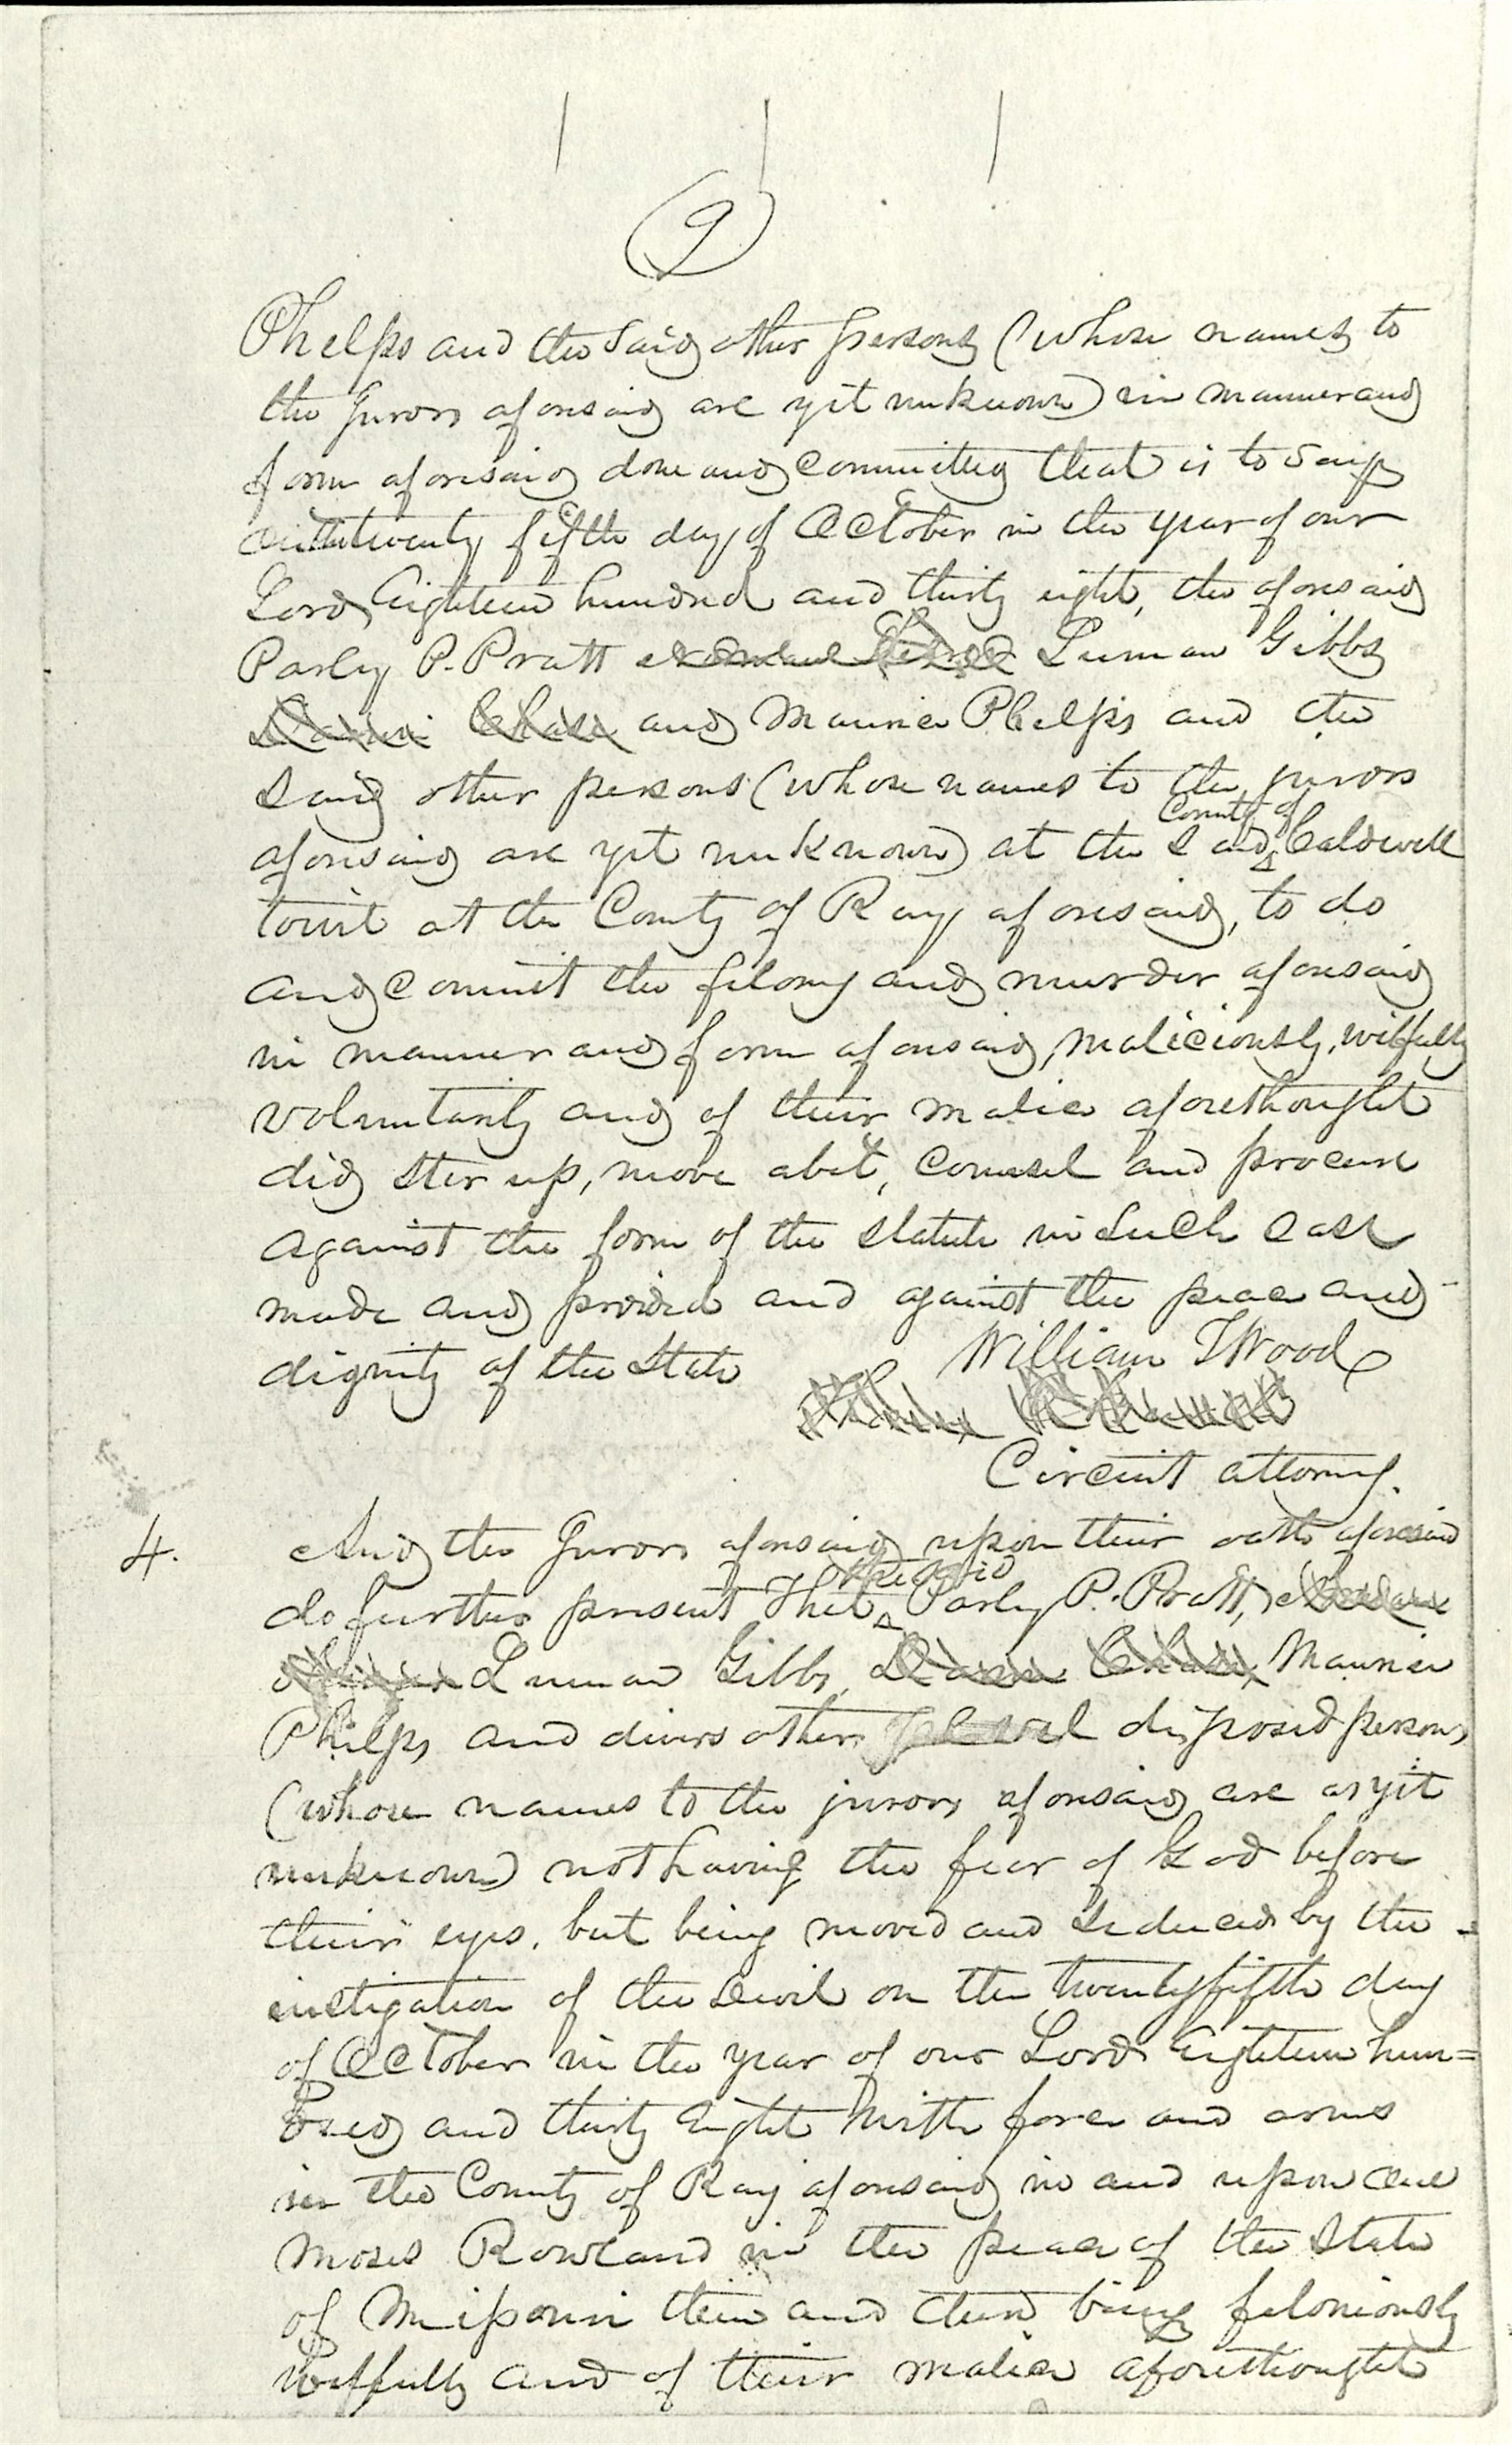 9
Phelps and the Said other persons (whose names to
the Jurors aforesaid are yet unknown) in manner and
form aforesaid done and committed that is to say
twenty fifth day of October in the year of our
Lord Eighteen hundred and thirty eight, the aforesaid
Parley P. Pratt Luman Gibbs
Darwin Chase and Maurice Phelps and the
said other persons (whose names to the jurors
County of
aforesaid are yet unknown) at the said Caldwell
towit at the County of Ray aforesaid, to do
and commit the felony and murder aforesaid
in manner and form aforesaid, maliciously, wilfully
voluntarily and of their malice aforethought
did stir up, move abet, counsel and procure
against the form of the statute in such case
made and provided and against the peace and
dignity of the State William T Wood
Circuit attorney.
4. And the Jurors aforesaid upon their oath aforesaid
the said
do further present That Parley P. Pratt,
Luman Gibbs, Darwin Chase, Maurice
Phelps and divers other disposed persons
(whose names to the jurors aforesaid are as yet
unknown) not having the fear of God before
their eyes, but being moved and seduced by the
instigation of the devil on the twenty fifth day
of October in the year of our Lord Eighteen hun=
dred and thirty Eight With force and arms
in the County of Ray aforesaid in and upon one
Moses Rowland in the peace of the State
of Missouri then and there being feloniously
wilfully and of their malice aforethought